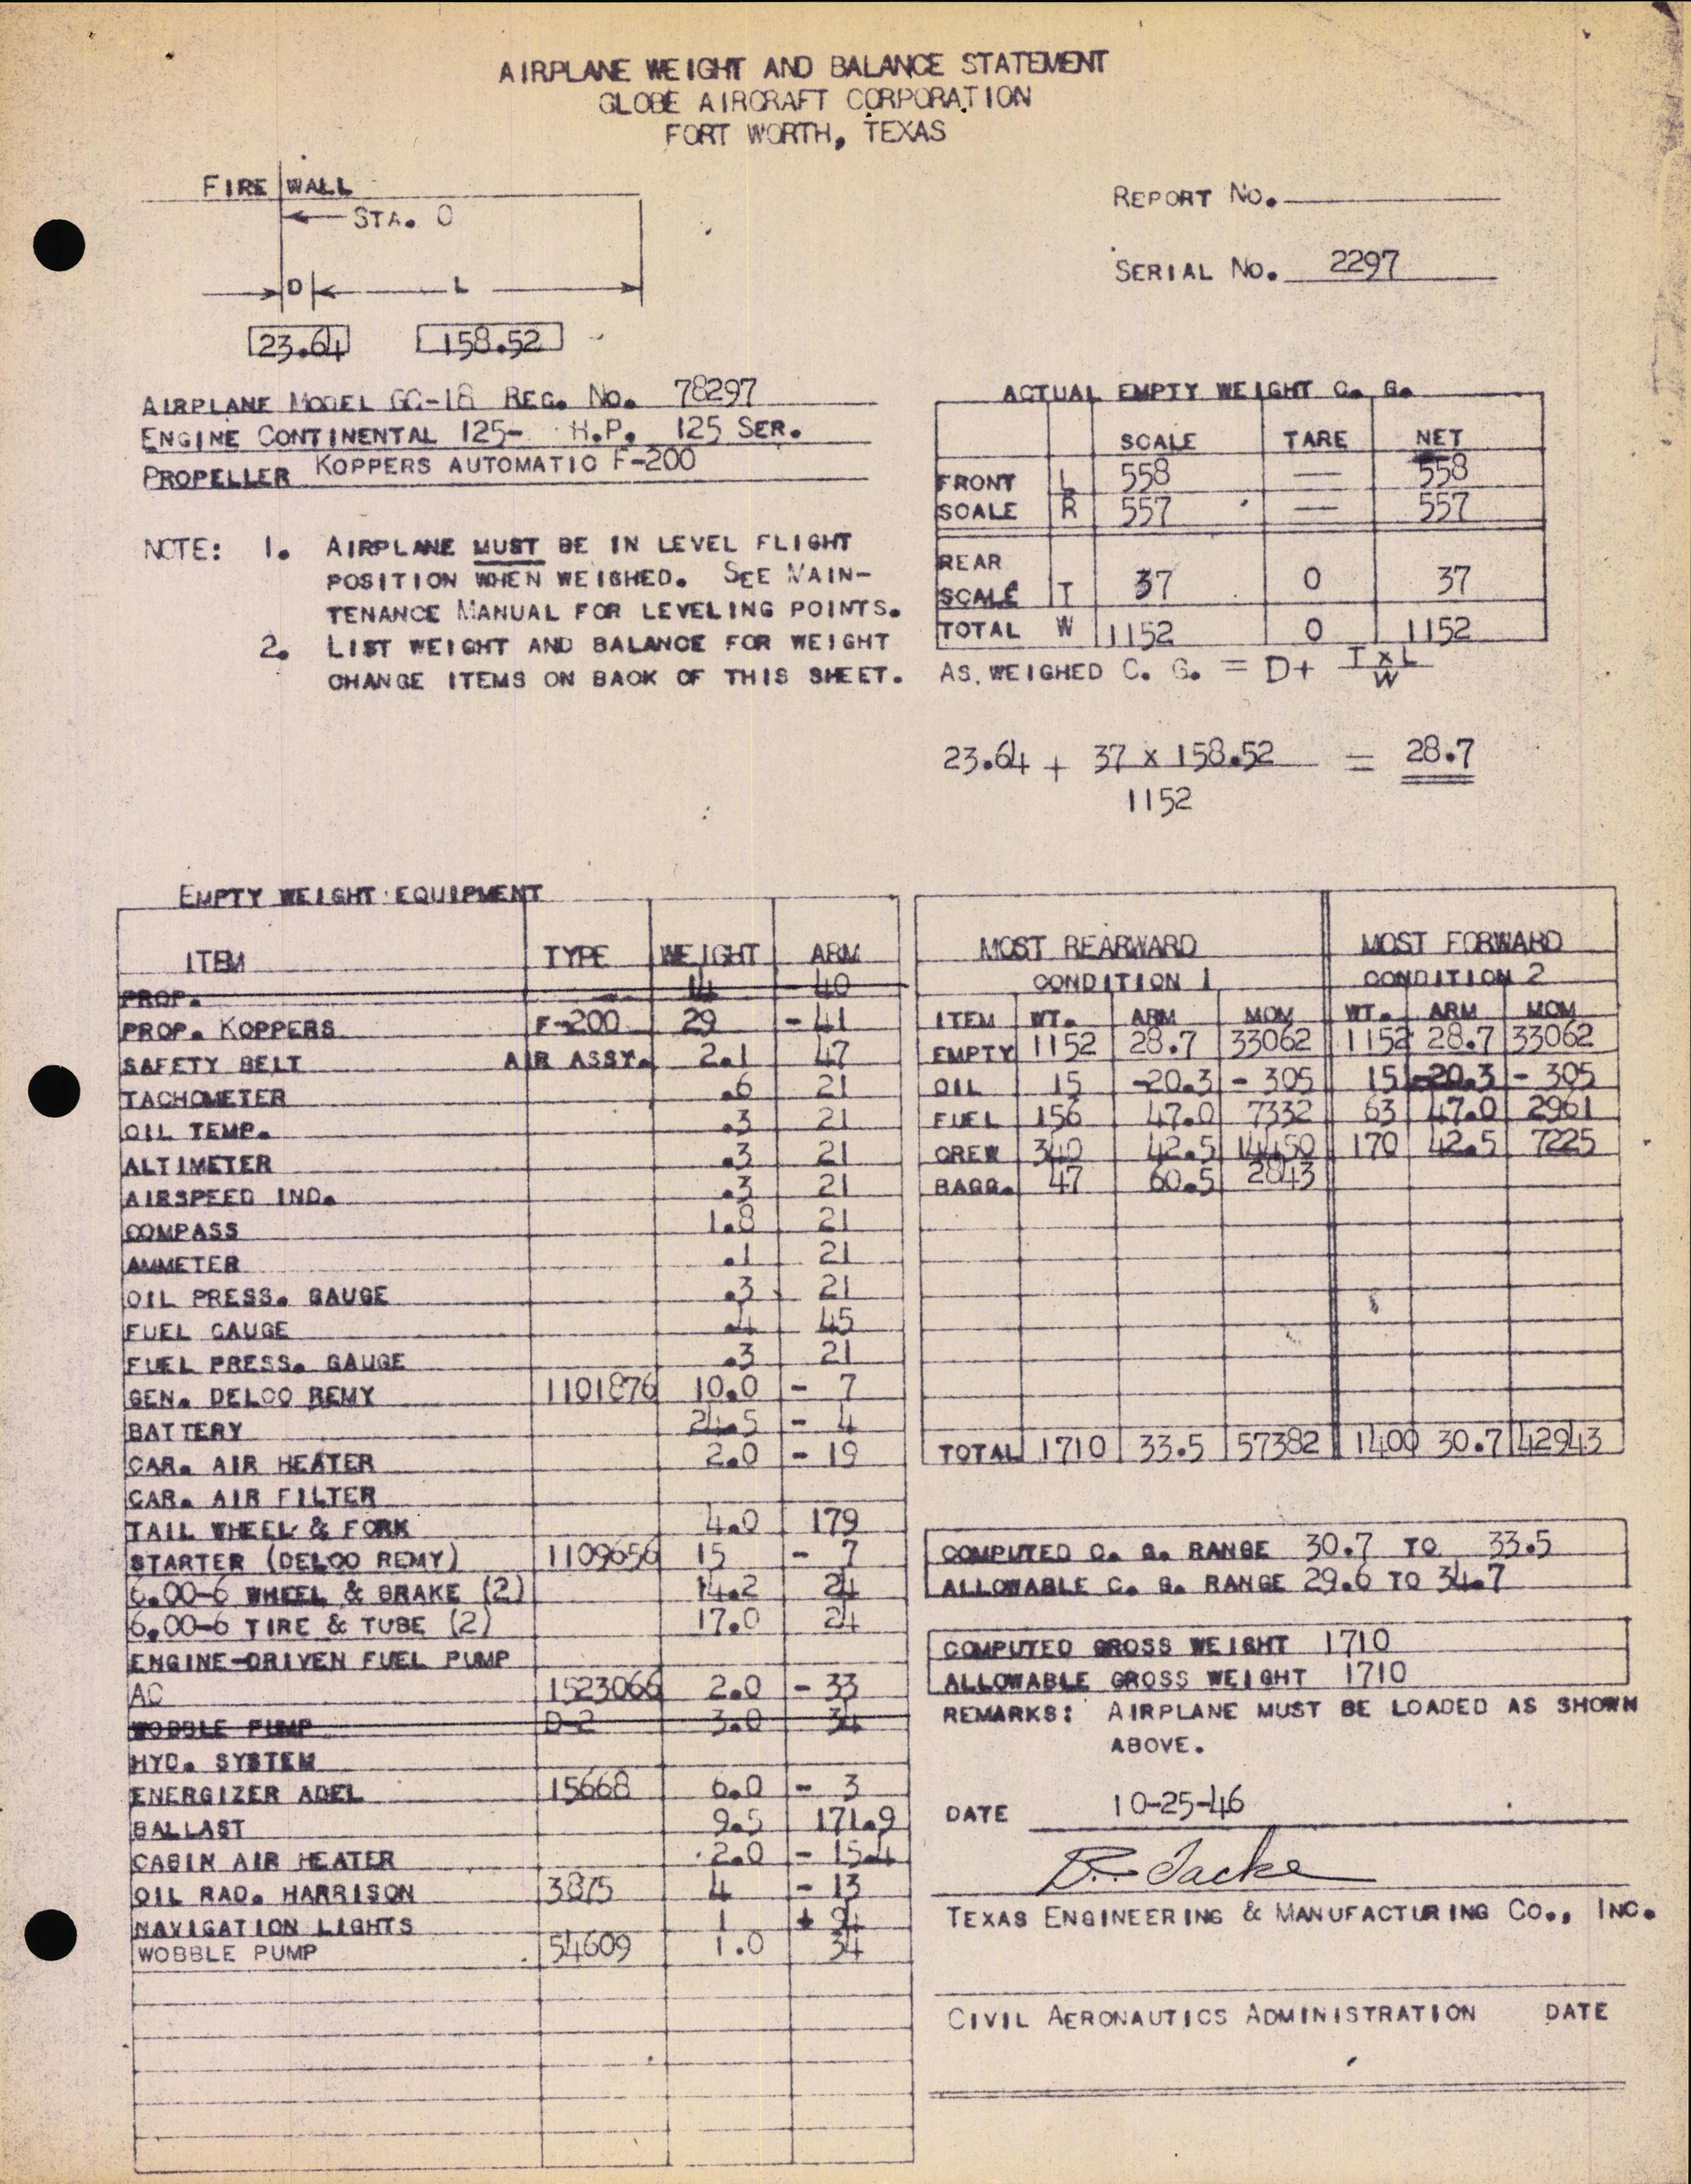 AIRPLANE WEIGHT AND BALANCE STATEMENT
GLOBE AIRCRAFT CORPORATION
FORT WORTH, TEXAS
FIRE WALL
STA. 0
D L
23.64 158.52
REPORT NO.
SERIAL NO. 2297
AIRPLANE MODEL GC-1B REG. NO. 78297
ENGINE CONTINENTAL 125- H.P. 125 SER.
PROPELLER KOPPERS AUTOMATIC F-200
NOTE: 1. AIRPLANE MUST BE IN LEVEL FLIGHT
POSITION WHEN WEIGHED. SEE MAIN-
TENANCE MANUAL FOR LEVELING POINTS.
2. LIST WEIGHT AND BALANCE FOR WEIGHT
CHANGE ITEMS ON BACK OF THIS SHEET.
ACTUAL EMPTY WEIGHT C. G.
SCALE TARE NET
FRONT L 558 — 558
SCALE R 557 — 557
REAR
SCALE T 37 0 37
TOTAL W 1152 0 1152
AS WEIGHED C. G. = D+ T x L
W
23.64 + 37 x 158.52 = 28.7
1152
EMPTY WEIGHT EQUIPMENT
ITEM TYPE WEIGHT ARM
PROP. 14 - 40
PROP. KOPPERS F-200 29 - 41
SAFETY BELT AIR ASSY. 2.1 47
TACHOMETER .6 21
OIL TEMP. .3 21
ALTIMETER .3 21
AIRSPEED IND. .3 21
COMPASS 1.8 21
AMMETER .1 21
OIL PRESS. GAUGE .3 21
FUEL GAUGE .4 45
FUEL PRESS. GAUGE .3 21
GEN. DELCO REMY 1101876 10.0 - 7
BATTERY 24.5 - 4
CAR. AIR HEATER 2.0 - 19
CAR. AIR FILTER
TAIL WHEEL & FORK 4.0 179
STARTER (DELCO REMY) 1109656 15 - 7
6.00-6 WHEEL & BRAKE (2) 14.2 24
6.00-6 TIRE & TUBE (2) 17.0 24
ENGINE-DRIVEN FUEL PUMP
AC 1523066 2.0 - 33
WOBBLE PUMP D-2 3.0 34
HYD. SYSTEM
ENERGIZER ADEL 15668 6.0 - 3
BALLAST 9.5 171.9
CABIN AIR HEATER 2.0 - 15.4
OIL RAD. HARRISON 3875 4 - 13
NAVIGATION LIGHTS 1 + 94
WOBBLE PUMP 54609 1.0 34
MOST REARWARD MOST FORWARD
CONDITION 1 CONDITION 2
ITEM WT. ARM MOM WT. ARM MOM
EMPTY 1152 28.7 33062 1152 28.7 33062
OIL 15 -20.3 - 305 15 -20.3 - 305
FUEL 156 47.0 7332 63 47.0 2961
CREW 340 42.5 14450 170 42.5 7225
BAGG. 47 60.5 2843
TOTAL 1710 33.5 57382 1400 30.7 42943
COMPUTED C. G. RANGE 30.7 TO 33.5
ALLOWABLE C. G. RANGE 29.6 TO 34.7
COMPUTED GROSS WEIGHT 1710
ALLOWABLE GROSS WEIGHT 1710
REMARKS: AIRPLANE MUST BE LOADED AS SHOWN
ABOVE.
DATE 10-25-46
TEXAS ENGINEERING & MANUFACTURING CO., INC.
CIVIL AERONAUTICS ADMINISTRATION DATE